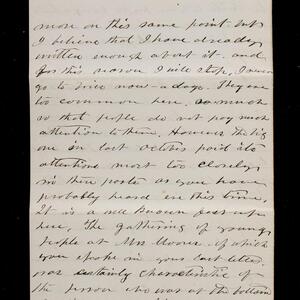 more on this same point but
I believe that I have already
written enough about it. and
for this reason I will stop, I never
go to fires now-a-days. They are
too common here. so much
so that people do not pay much
attention to them. However the big
one in last October paid its
attentions most too closely
in these parts as you have
probably heard in this time,
It is a well known fact up
here, The gathering of young
people at Mrs Moores. of which
you spoke in your last letter.
was certainly characteristic of
the person who was at the bottom